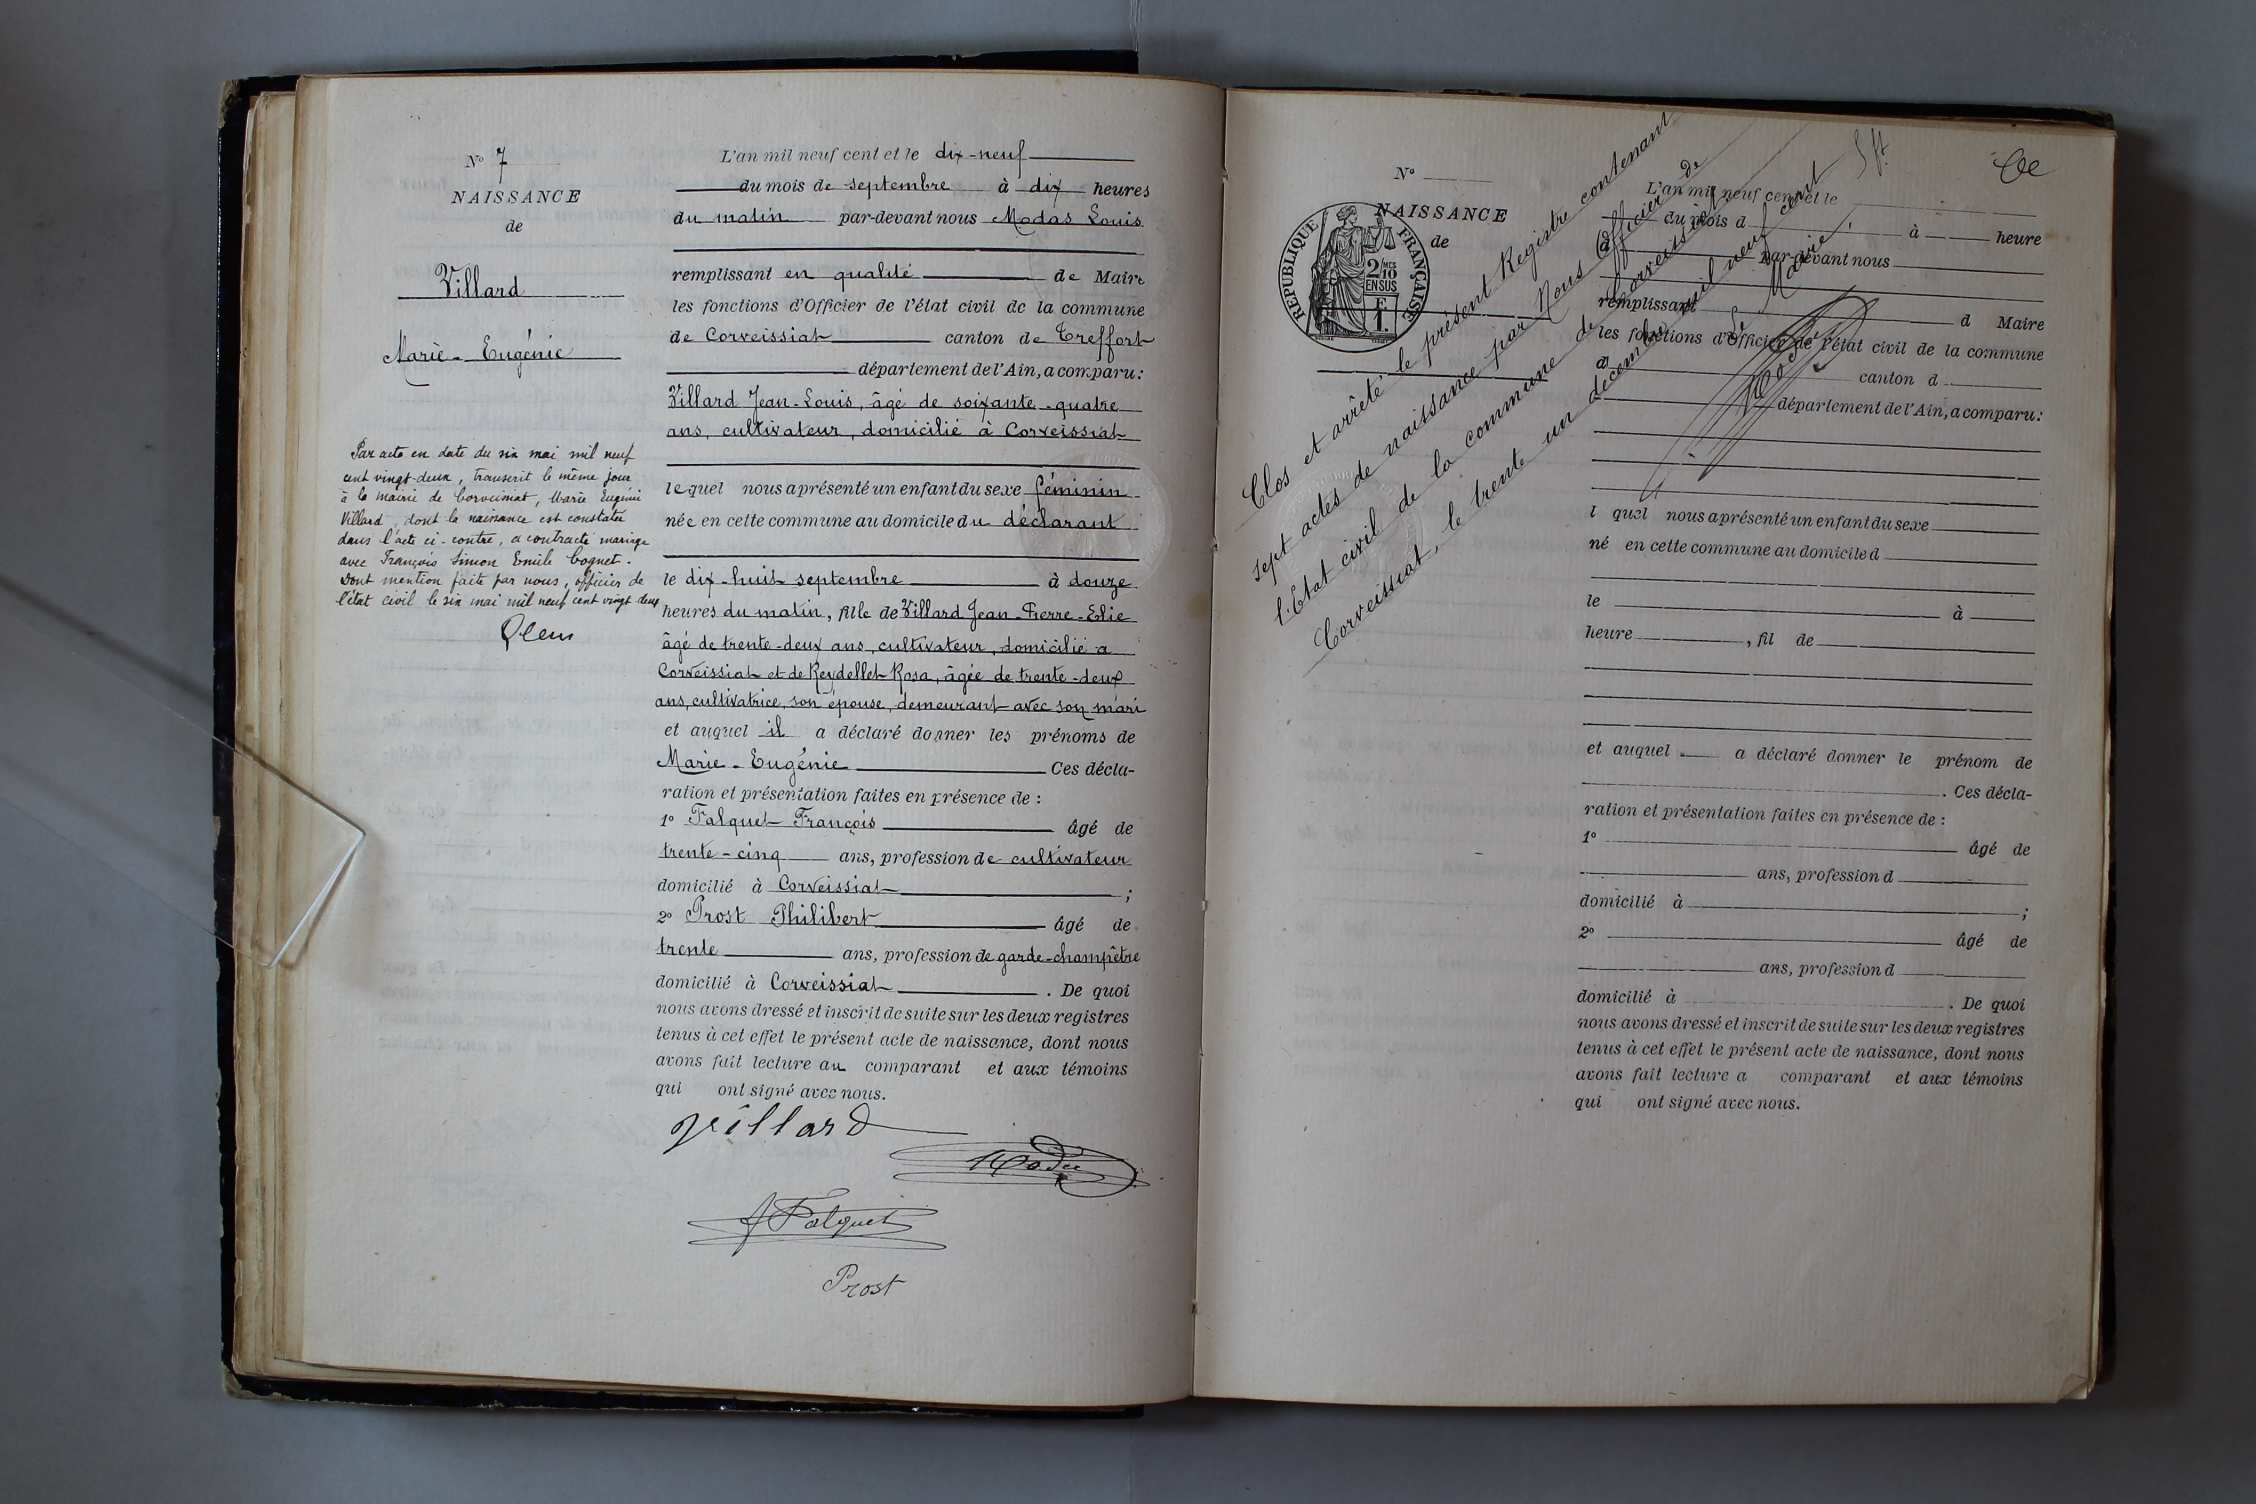 No 7
NAISSANCE
de
Villard
Marie-Eugénie
Par acte en date du six mai mil neuf
cent vingt-deux, transcrit le même jour
à la mairie de Corveissiat, Marie Eugénie
Villard, dont la naissance est constatée
dans l'acte ci-contre, a contracté mariage
avec François Simon Emile Cognet.
Dont mention faite par nous, officier de
l'état civil le six mai mil neuf cent vingt deux
L'an mil neuf cent et le dix-neuf
du mois de septembre à dix heures
du matin par-devant nous Modas Louis
remplissant en qualité de Maire
les fonctions d'Officier de l'état civil de la commune
de Corveissiat canton de Treffort
département de l'Ain, a comparu:
Villard Jean-Louis, âgé de soixante-quatre
ans, cultivateur, domicilié à Corveissiat
lequel nous a présenté un enfant du sexe féminin
née en cette commune au domicile du déclarant
le dix-huit septembre à douze
heures du matin, fille de Villard Jean-Pierre-Elie
âgé de trente-deux ans, cultivateur, domicilié à
Corveissiat et de Reydellet Rosa, âgée de trente-deux
ans, cultivatrice, son épouse, demeurant avec son mari
et auquel il a déclaré donner les prénoms de
Marie-Eugénie Ces décla-
ration et présentation faites en présence de :
1o Falquet François âgé de
trente-cinq ans, profession de cultivateur
domicilié à Corveissiat ;
2o Prost Philibert âgé de
trente ans, profession de garde-champêtre
domicilié à Corveissiat . De quoi
nous avons dressé et inscrit de suite sur les deux registres
tenus à cet effet le présent acte de naissance, dont nous
avons fait lecture au comparant et aux témoins
qui ont signé avec nous.
Villard
Modas
F Falquet
Prost
No
NAISSANCE
de
RÉPUBLIQUE FRANÇAISE
2/10 MES
EN SUS
F.
1.
Clos et arrêté le présent Registre contenant
sept actes de naissance par Nous Officier de
l'Etat civil de la commune de Corveissiat, à
Corveissiat, le trente un décembre mil neuf cent
Le Maire,
Modas
L'an mil neuf cent et le
du mois d à heure
par-devant nous
remplissant d Maire
les fonctions d'Officier de l'état civil de la commune
d canton d
département de l'Ain, a comparu:
l quel nous a présenté un enfant du sexe
né en cette commune au domicile d
le à
heure , fil de
et auquel a déclaré donner le prénom de
. Ces décla-
ration et présentation faites en présence de :
1o âgé de
ans, profession d
domicilié à ;
2o âgé de
ans, profession d
domicilié à . De quoi
nous avons dressé et inscrit de suite sur les deux registres
tenus à cet effet le présent acte de naissance, dont nous
avons fait lecture a comparant et aux témoins
qui ont signé avec nous.